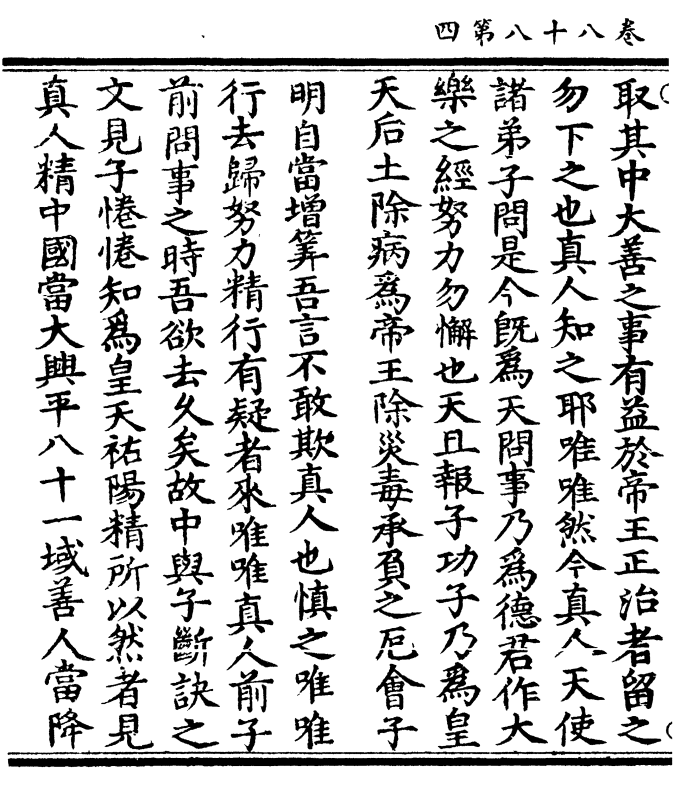 卷八十八第四
取其中大善之事有益於帝王正治者留之
勿下之也真人知之耶唯唯然今真人天使
諸弟子問是今旣爲天問事乃爲德君作大
樂之經努力勿懈也天且報子功子乃爲皇
天后土除病爲帝王除災毒承負之厄會子
明自當增筭吾言不敢欺真人也慎之唯唯
行去歸努力精行有疑者來唯唯真人前子
前問事之時吾欲去久矣故中與子斷訣之
文見子惓惓知爲皇天祐陽精所以然者見
真人精中國當大興平八十一域善人當降